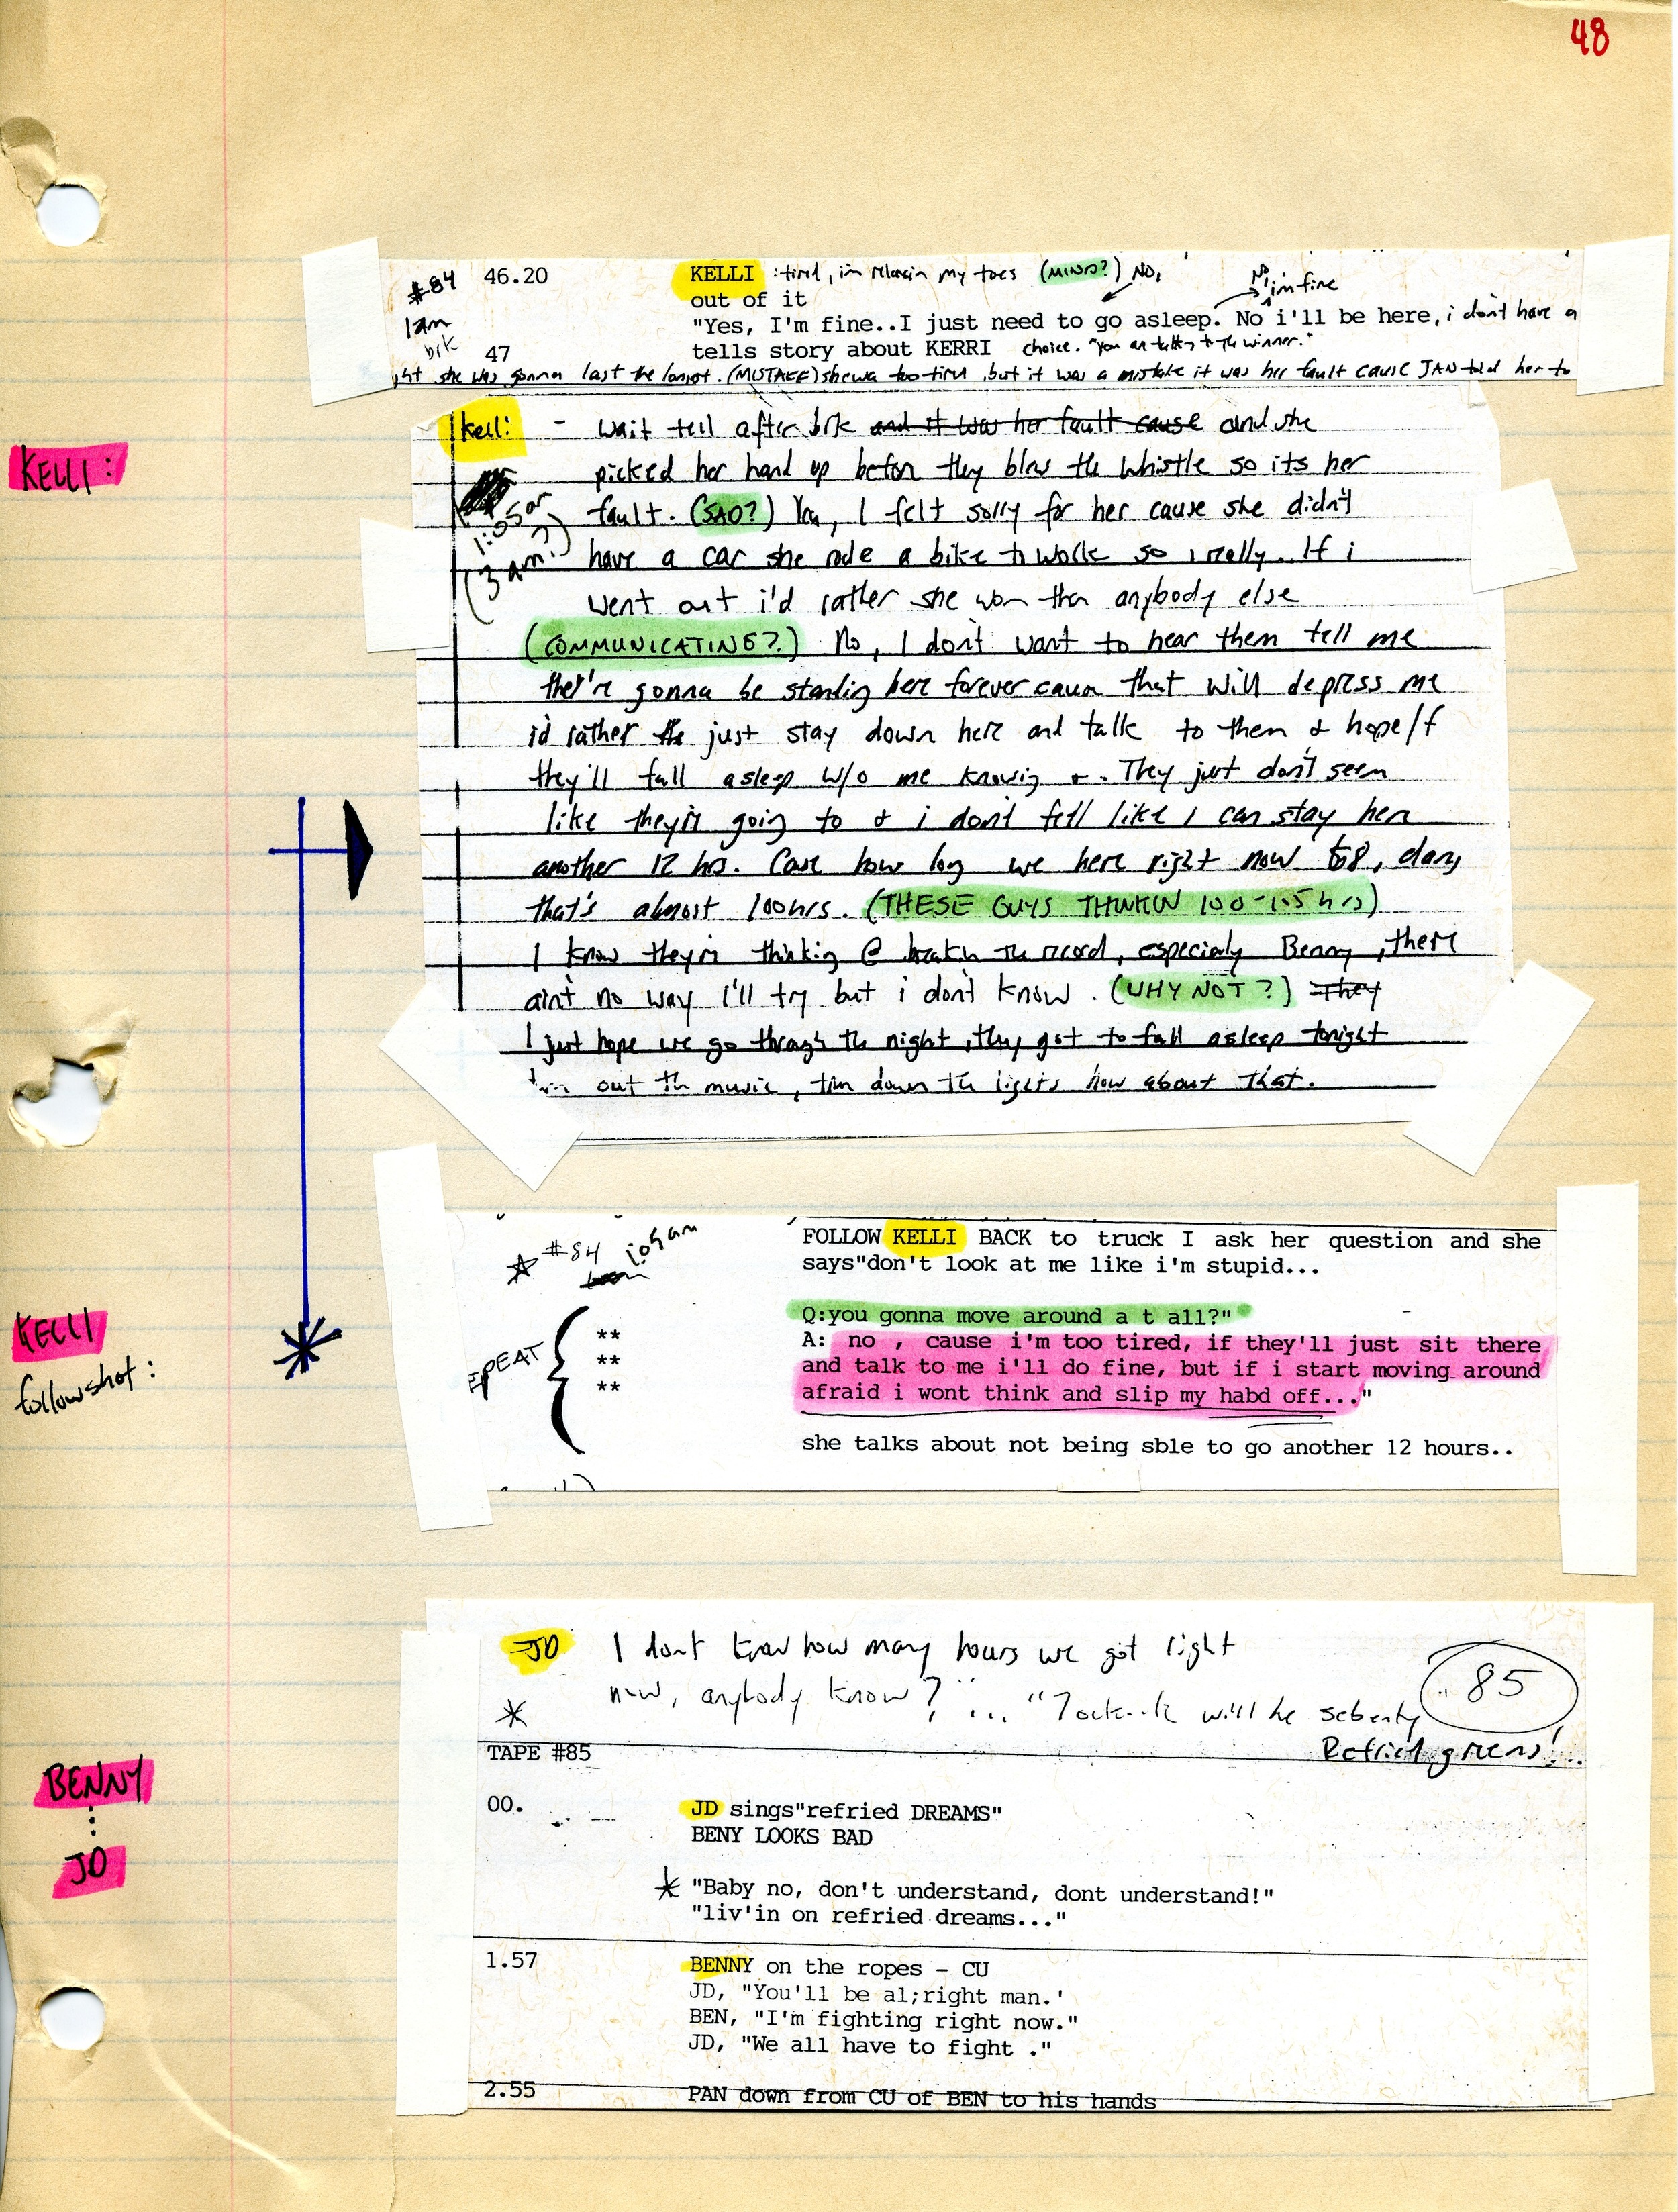 48
#84 46.20 KELLI : tired, im relaxin my toes (MIND?) NO,
1am out of it No, im fine
brk "Yes, I'm fine..I just need to go asleep. No i'll be here, i don't have a
47 tells story about KERRI choice. "you are talking to the winner."
she was gonna last the longest. (MISTAKE) she was too tired, but it was a mistake it was her fault cause JAN told her to
KELLI:
Kelli: - wait tell after brk and it was her fault cause and she
picked her hand up before they blew the whistle so its her
1:05am fault. (SAD?) Yea, I felt sorry for her cause she didn't
(3am?) have a car she rode a bike to work so i really. If i
went out i'd rather she won than anybody else
(COMMUNICATING?) No, I don't want to hear them tell me
they're gonna be standing here forever cause that will depress me
i'd rather just stay down here and talk to them & hope/f
they'll fall asleep w/o me knowing . They just don't seem
like they're going to & i don't fell like i can stay here
another 12 hrs. Cause how long we here right now 68, dang
that's almost 100hrs. (THESE GUYS THINKIN 100-105 hrs)
I know they're thinking @ breakin the record, especialy Benny, there
ain't no way I'll try but i don't know. (WHY NOT?) They
I just hope we go through the night, they got to fall asleep tonight
out the music, turn down the lights how about that.
#84 1:05am
FOLLOW KELLI BACK to truck I ask her question and she
says"don't look at me like i'm stupid...
KELLI
followshot:
EPEAT
** Q:you gonna move around a t all?"
** A: no , cause i'm too tired, if they'll just sit there
** and talk to me i'll do fine, but if i start moving around
afraid i wont think and slip my habd off..."
she talks about not being sble to go another 12 hours..
JD I dont know how many hours we got right
now, anybody know?"... "7 oclock will be seventy
85
Refried greens!..
TAPE #85
BENNY
JD
00. JD sings"refried DREAMS"
BENY LOOKS BAD
"Baby no, don't understand, dont understand!"
"liv'in on refried dreams..."
1.57 BENNY on the ropes - CU
JD, "You'll be al;right man.'
BEN, "I'm fighting right now."
JD, "We all have to fight ."
2.55 PAN down from CU of BEN to his hands